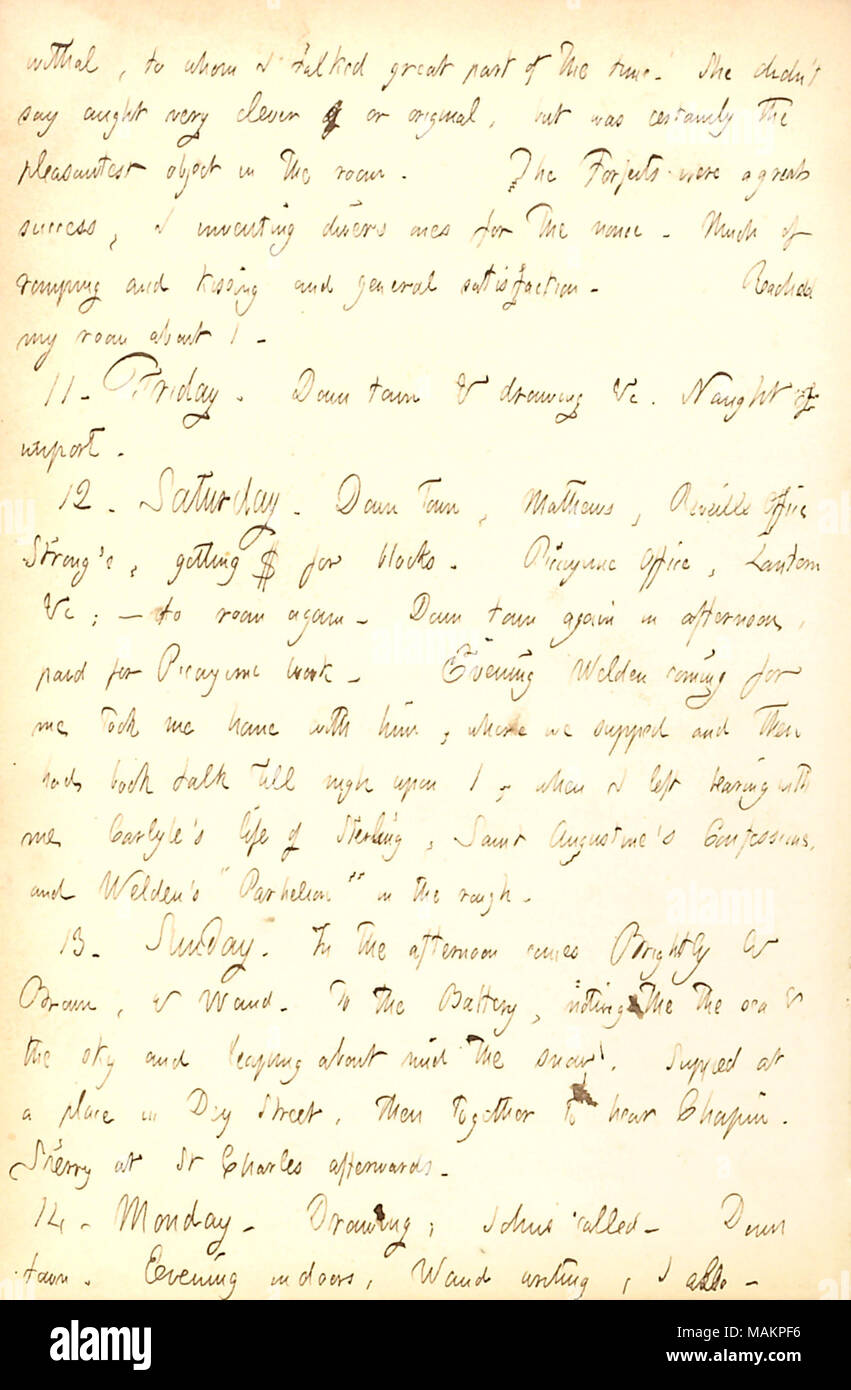 withal, to whom I talked great part of the time. She didn't
say aught very clever or original, but was certainly the
pleasantest object in the room. The Forfeits were a great
success, I inventing divers ones for the nonce. Much of
romping and kissing and general satisfaction. Reached
my room about 1.
11. Friday. Down town & drawing &c. Naught of
import.
12. Saturday. Down town, Mathews, Reveille Office
Strong's, getting $ for blocks. Picayune Office, Lantern
&c; — to room again. Down town again in afternoon,
paid for Picayune work. Evening Welden coming for
me took me home with him, where we supped and then
had book talk till nigh upon 1, when I left bearing with
me Carlyle's life of Sterling, Saint Augustine's Confessions,
and Welden's "Parhelion" in the rough.
13. Sunday. In the afternoon comes Brightly &
Brown, & Waud. To the Battery, noting the the sea &
the sky and leaping about mid the snow. Supped at
a place in Dey Street, then together to hear Chapin.
Sherry at St Charles afterwards.
14. Monday. Drawing; Johns called. Down
town. Evening indoors, Waud writing, I also.
alamy
Image ID: MAKPF6
www.alamy.com